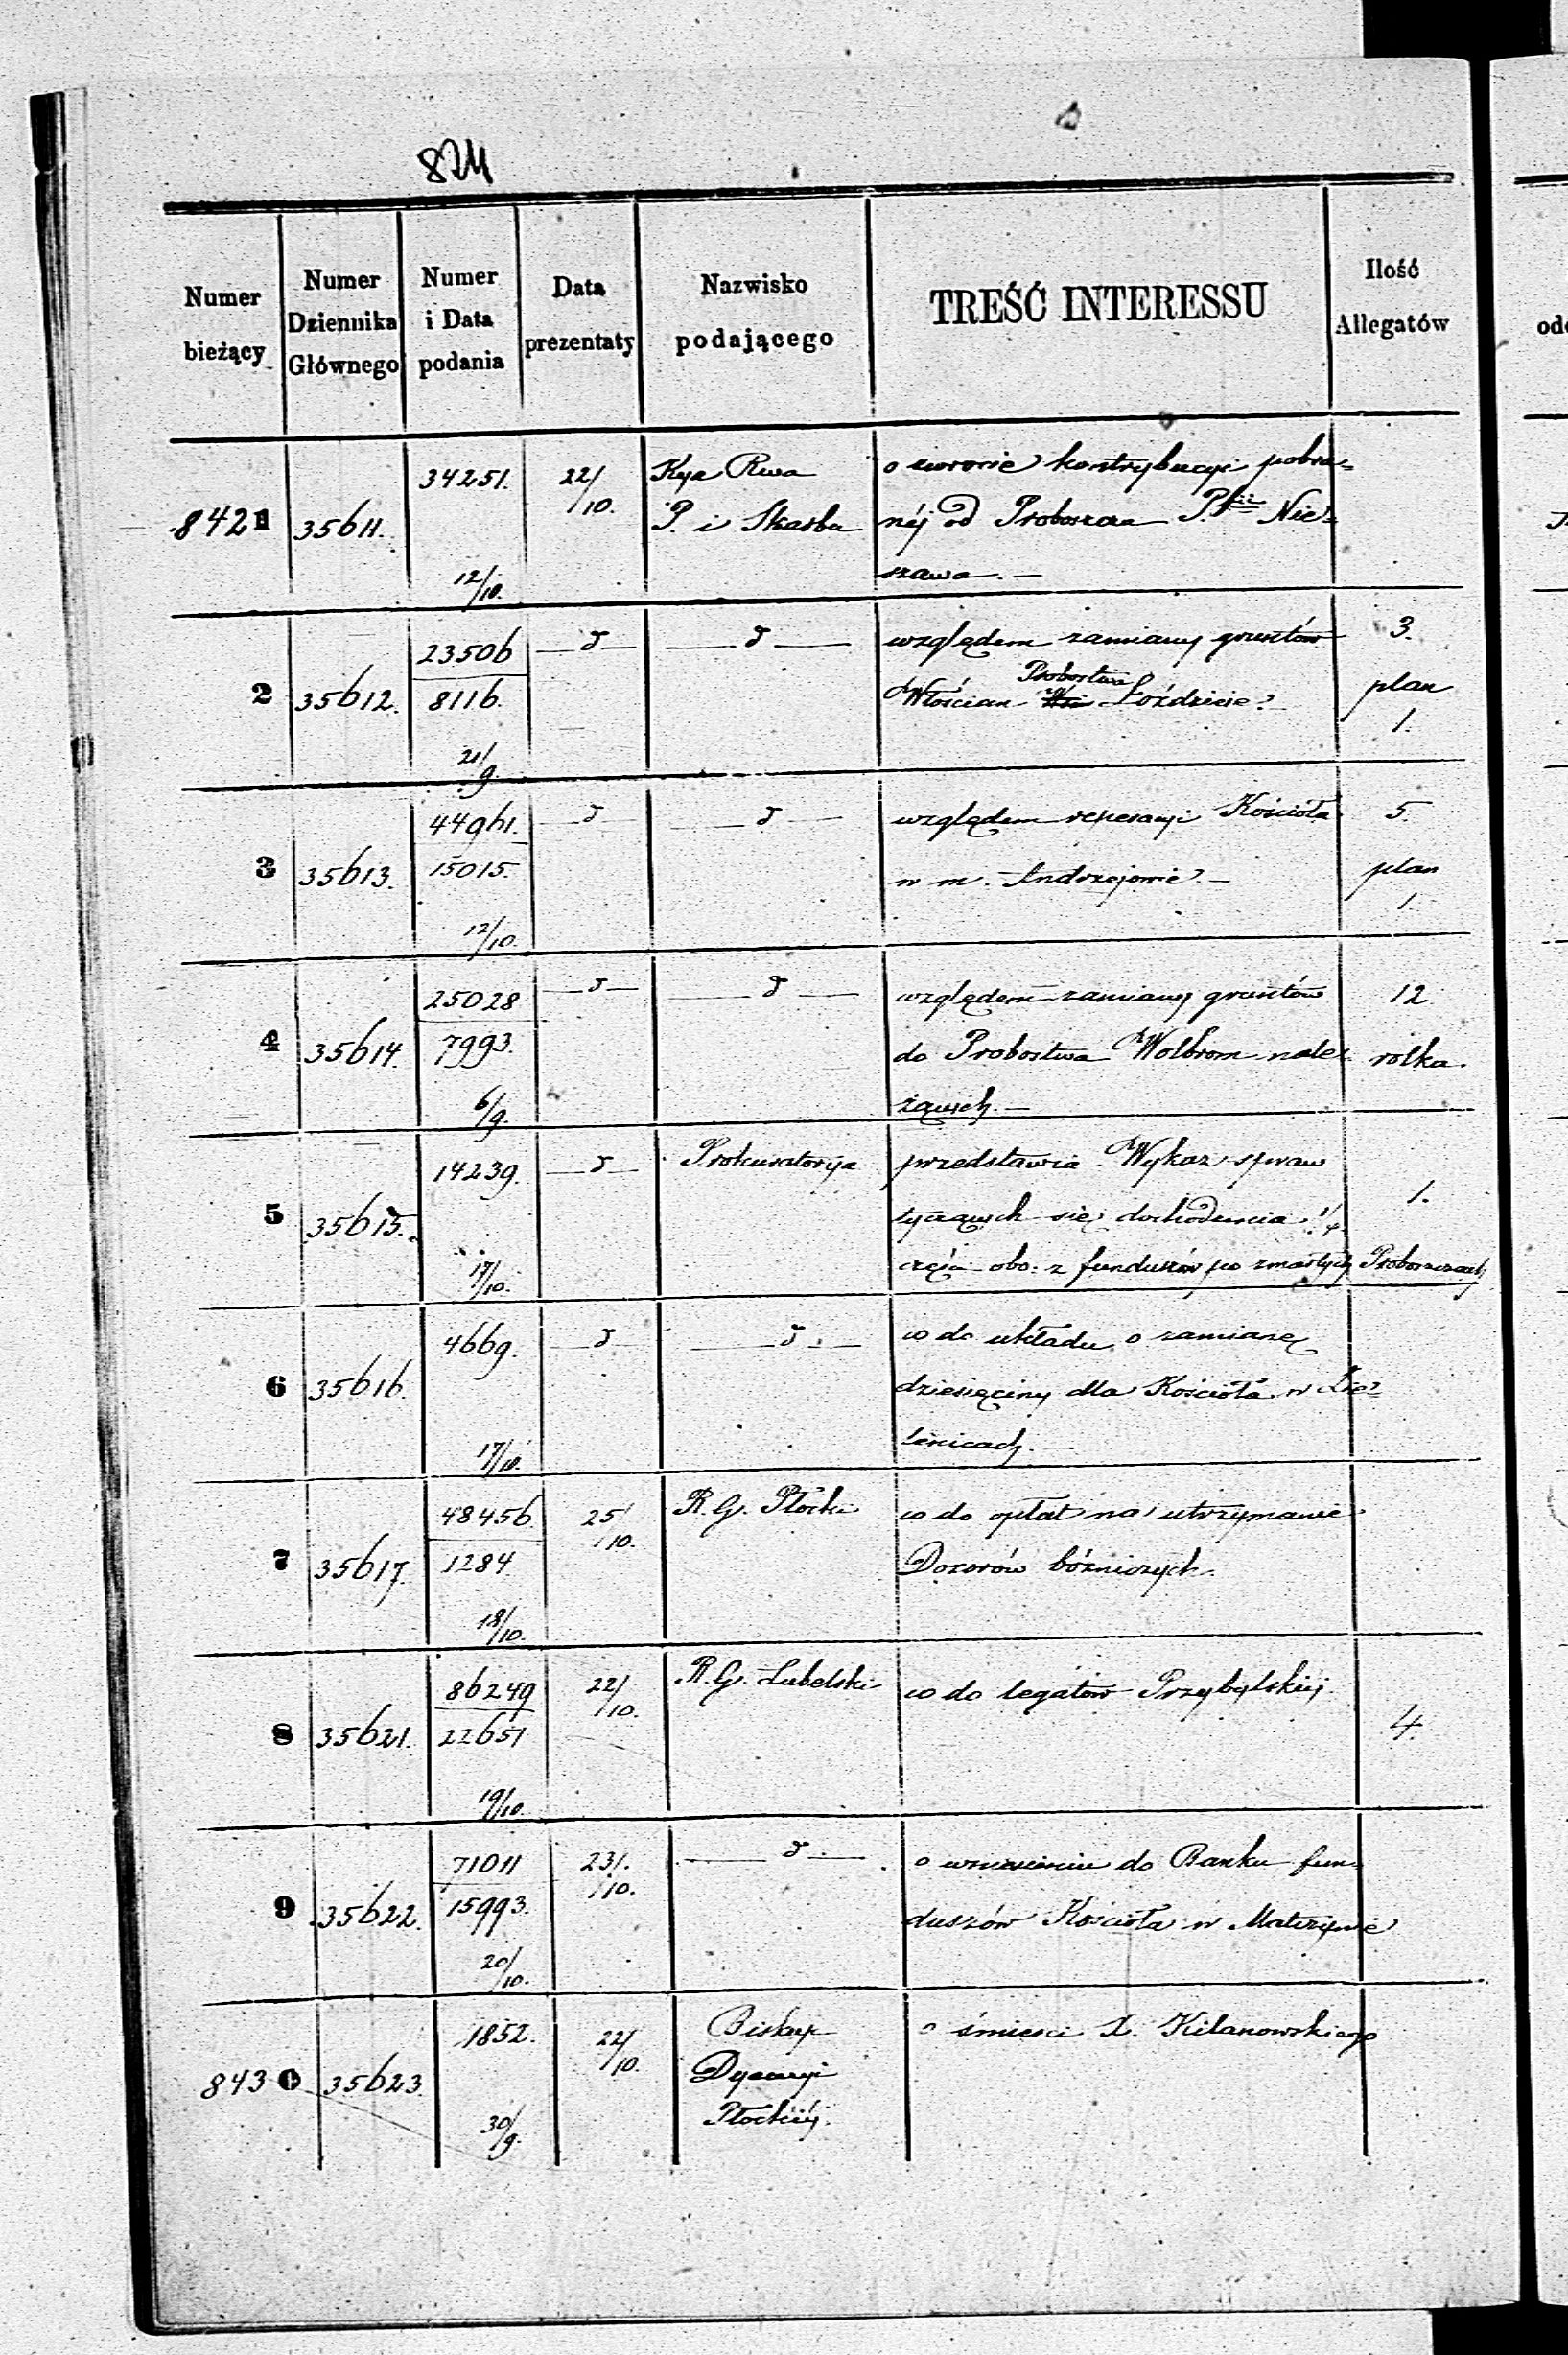 824
Numer bieżący
Numer Dziennika Głównego
Numer i Data podania
Data prezentaty
Nazwisko podającego
TREŚĆ INTERESSU
Ilość Allegatów
8421 35611. 34251. 12/10. 22/10. Kya Rwa o zwrocie kontrybucyi pobra=
P. i Skarbu néj od Proboszcza P.kii Nie=
szawa. —
2 35612. 23506 8116. 21/9. — d — — d — względem zamiany gruntów 3.
Włościan Probostwa Łoździeie plan
1.
3 35613. 44961. 15015. 12/10. — d — — d — względem reperacyi Kościoła 5.
w m. Andrzejowie. — plan
1.
4 35614. 25028 7993. 6/9. — d — — d — względem zamiany gruntów 12
do Probostwa Wolbrom nale= rolka.
żących. —
5 35615. 14239. 17/10. — d — Prokuratorya przedstawia Wykaz spraw 1.
tyczących się dochodzenia 1/4
części obo: z funduszów po zmarłych Proboszczach
6 35616. 4669. 17/10. — d — — d — co do układu o zamianę
dziesięciny dla Kościoła w
7 35617. 48456. 1284. 18/10. 25/10. R. G. Płocki co do opłat na utrzymanie
Dozorów bóżniczych.
8 35621. 86249 22651 19/10. 22/10. R. G. Lubelski co do legatów Przybylskiéj. 4.
9 35622. 71011 15993. 20/10. 23/10. — d — o wniesieniu do Banku fun=
duszów Kościoła w Matczynie
8430 35623. 1852. 30/9. 22/10. Biskup o śmierci X. Kilanowskiego
Dyecezyi
Płockiéj.